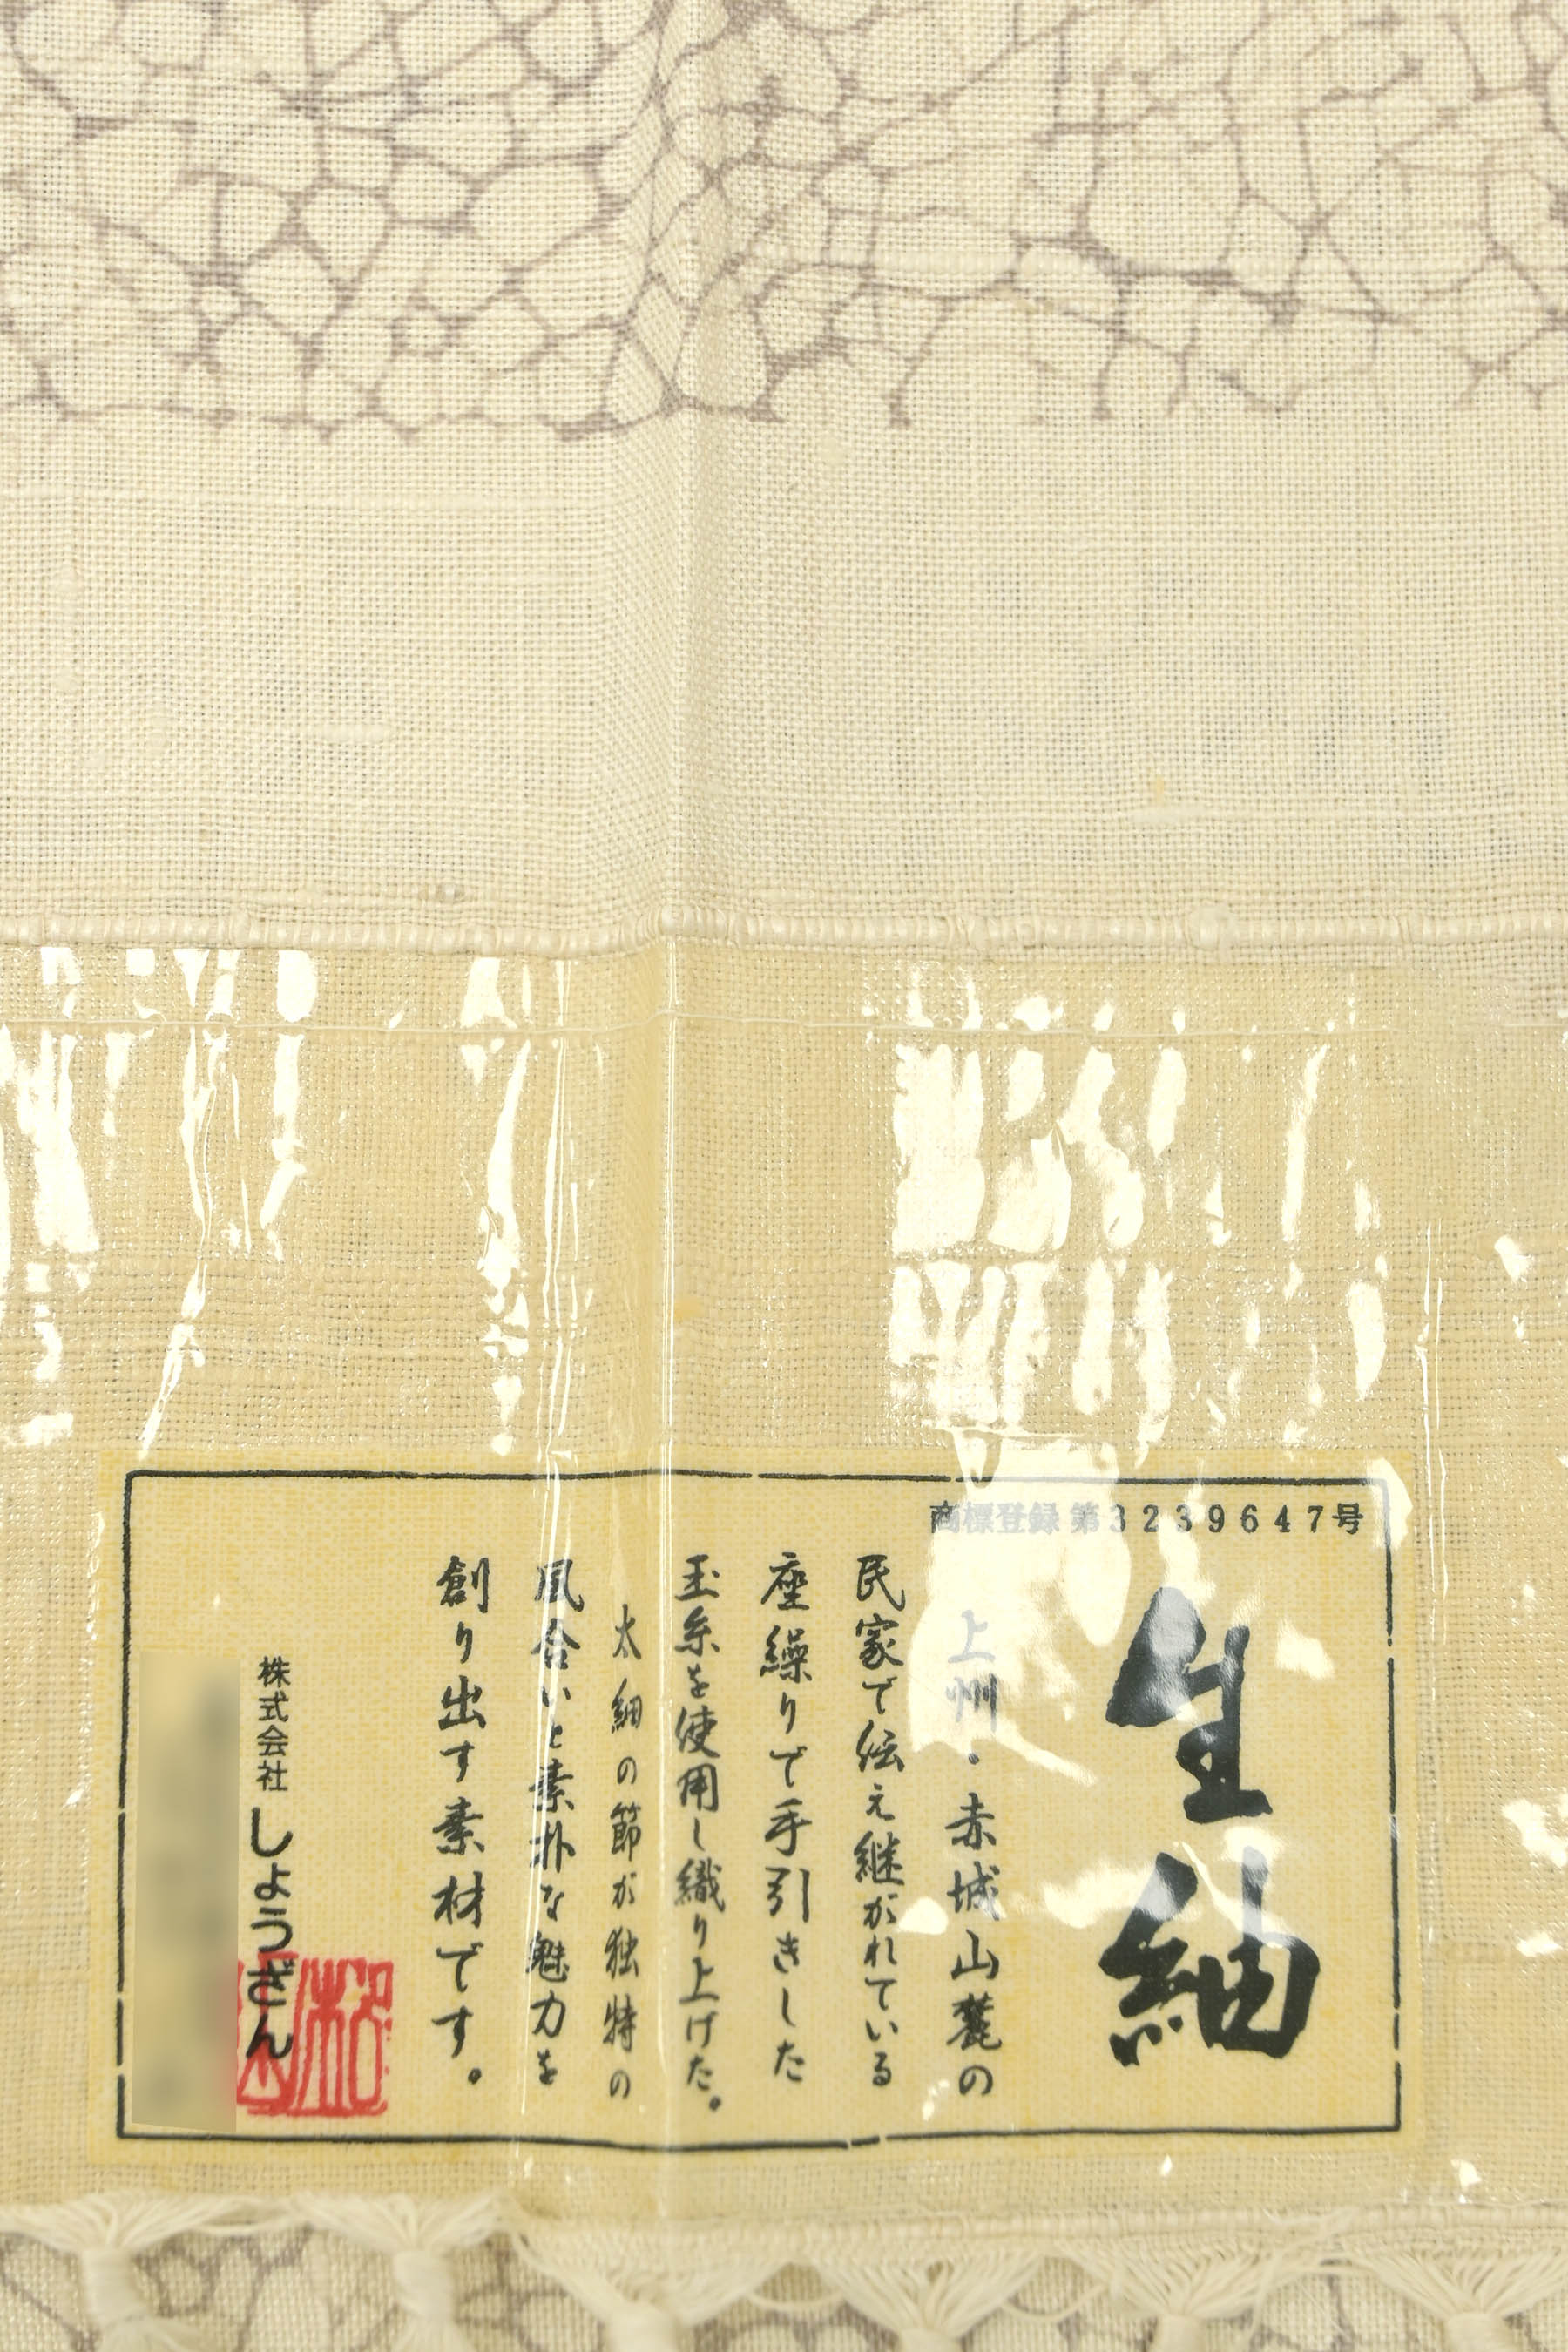 商標登録第3239647号
生紬
上州・赤城山麓の
民家で伝え継がれている
座繰りで手引きした
玉糸を使用し織り上げた。
太細の節が独特の
風合いと素朴な魅力を
創り出す素材です。
株式会社しょうざん